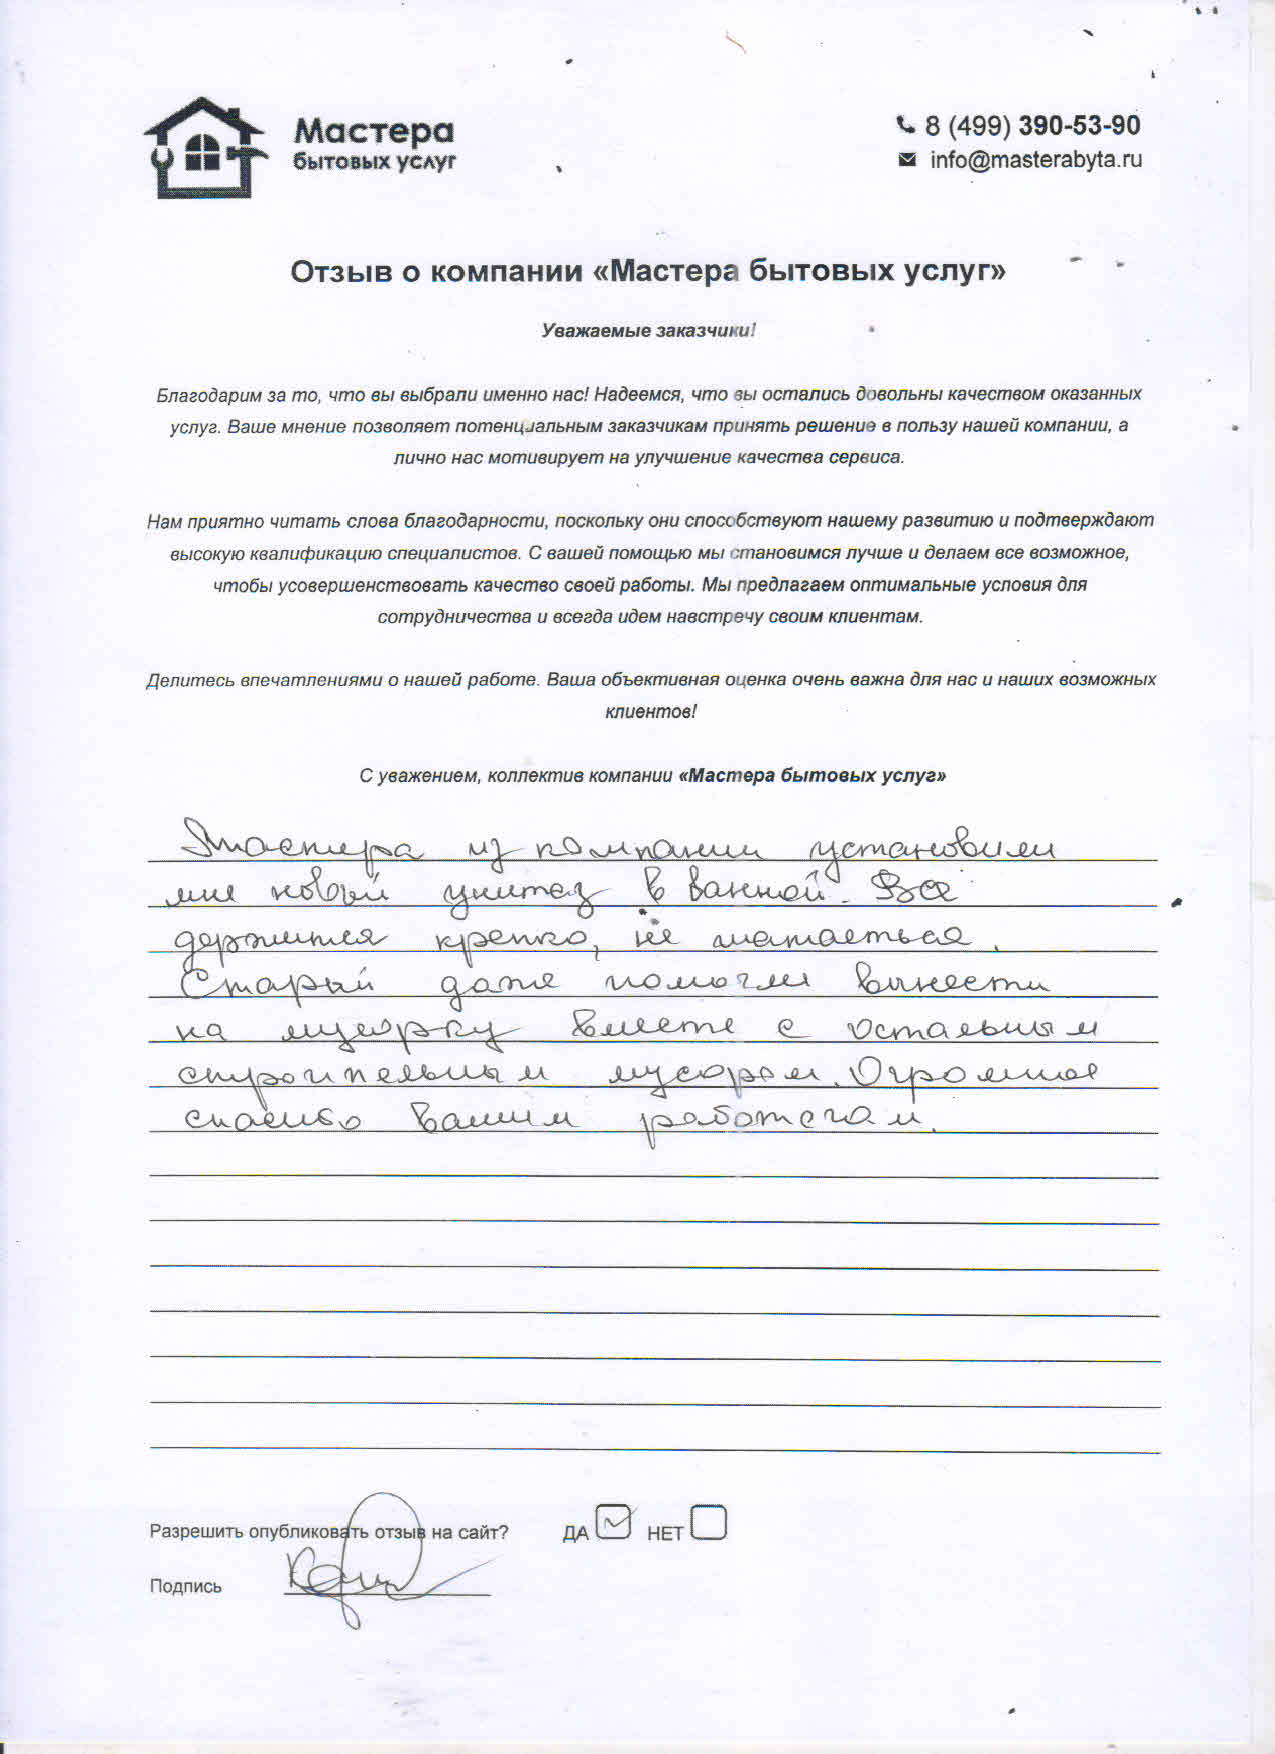 Мастера
бытовых услуг
8 (499) 390-53-90
info@masterabyta.ru
Отзыв о компании «Мастера бытовых услуг»
Уважаемые заказчики!
Благодарим за то, что вы выбрали именно нас! Надеемся, что вы остались довольны качеством оказанных
услуг. Ваше мнение позволяет потенциальным заказчикам принять решение в пользу нашей компании, а
лично нас мотивирует на улучшение качества сервиса.
Нам приятно читать слова благодарности, поскольку они способствуют нашему развитию и подтверждают
высокую квалификацию специалистов. С вашей помощью мы становимся лучше и делаем все возможное,
чтобы усовершенствовать качество своей работы. Мы предлагаем оптимальные условия для
сотрудничества и всегда идем навстречу своим клиентам.
Делитесь впечатлениями о нашей работе. Ваша объективная оценка очень важна для нас и наших возможных
клиентов!
С уважением, коллектив компании «Мастера бытовых услуг»
Мастера из компании установили
мне новый унитаз в ванной. Все
держится крепко, не шатаеться.
Старый даже помогли вынести
на мусорку вместе с остальным
строительным мусором. Огромное
спасибо вашим работягам.
Разрешить опубликовать отзыв на сайт? ДА НЕТ
Подпись